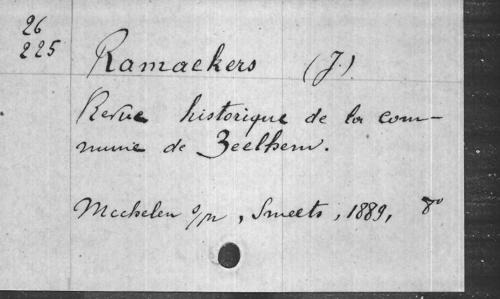 26
225
Ramaekers (J.)
Revue historique de la com-
mune de Zeelhem.
Mechelen s/m, Smeets, 1889, 8º